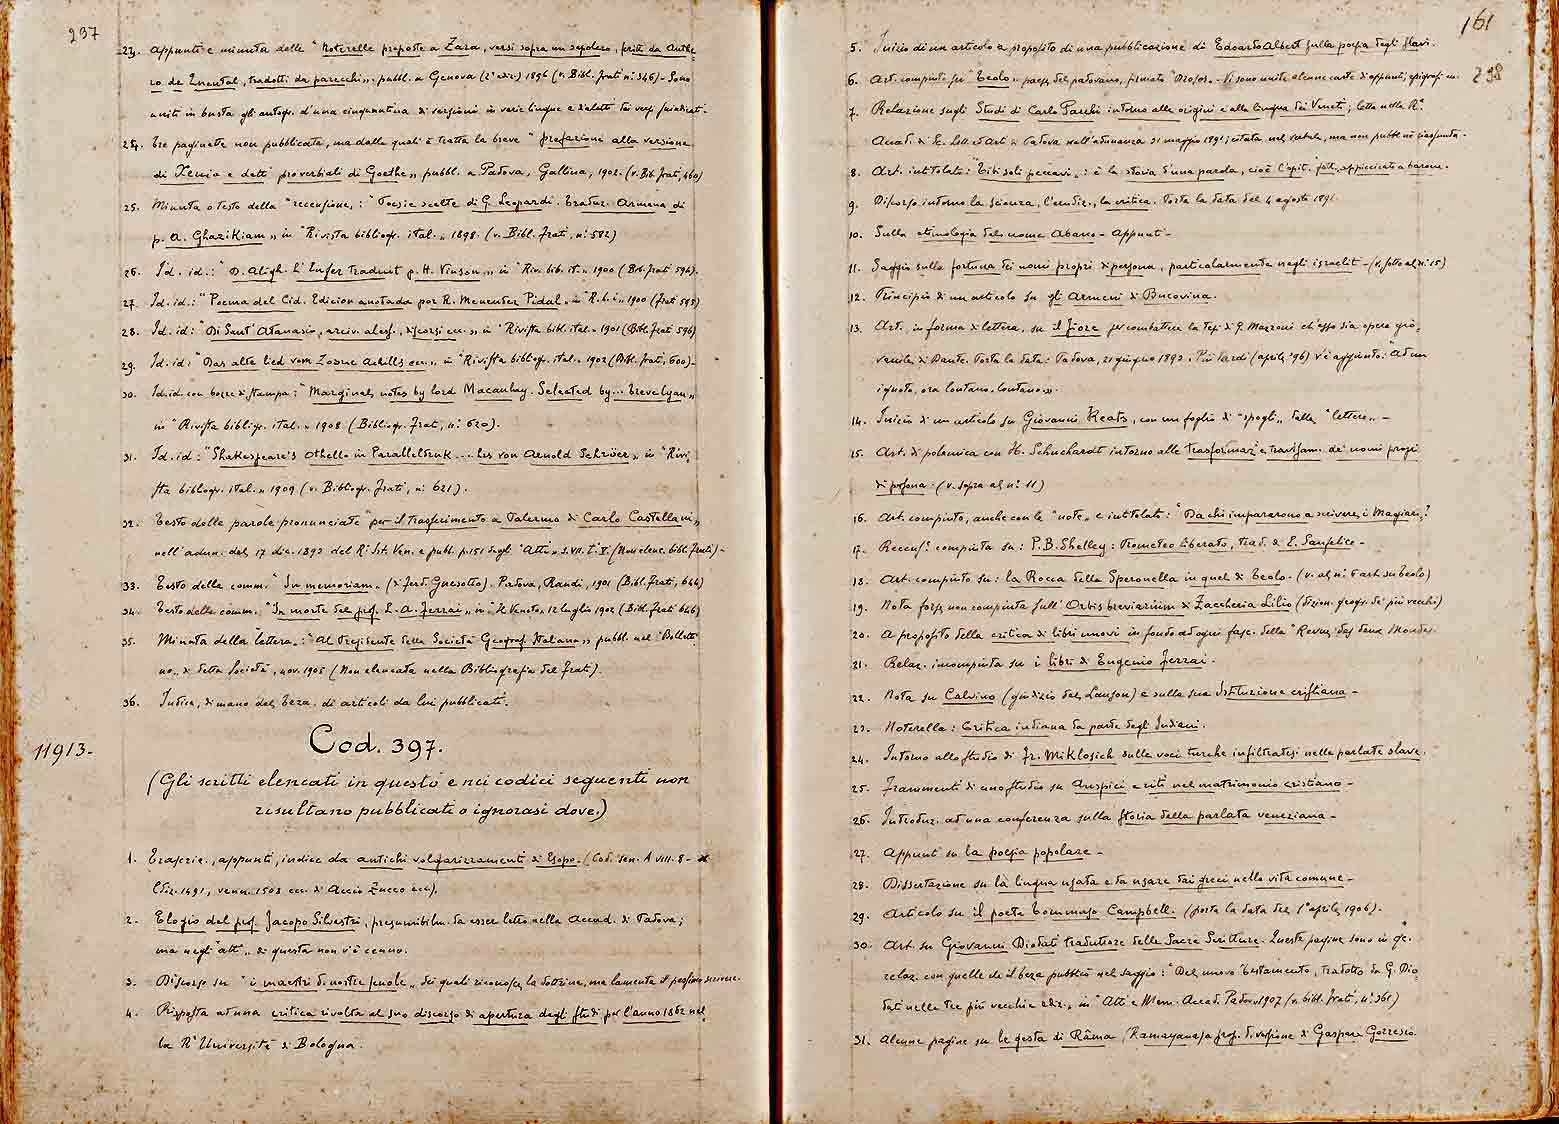 237
23. Appunti e minuta delle "Noterelle proposte a Zara, versi sopra un sepolcro, scritti da Anthe-
ro de Quental, tradotti da parecchi„ pubbl. a Genova (2ª ediz.) 1896 (v. Bibl. Frati nº 546) - Sono
uniti in busta gli autogr. d'una cinquantina di versioni in varie lingue e dialetti dei versi suindicati.
24. Tre paginette non pubblicate, ma dalle quali è tratta la breve "prefazione alla versione
di Xenia e detti proverbiali di Goethe„ pubbl. a Padova, Gallina, 1902. (v. Bib. Frati, 460)
25. Minuta o testo della "recensione„: "Poesie scelte di G. Leopardi. Traduz. Armena di
p. A. Ghazikiam„ in "Rivista bibliogr. ital.„ 1898. (v. Bibl. Frati, nº 582)
26. Id. id.: "D. Aligh. L'Enfer traduit p. H. Vinson„ in "Riv. bib. it.„ 1900 (Bib. Frati 594).
27. Id. id.: "Poema del Cid. Edicion anotada por R. Menendez Pidal„ in "R. b. i.„ 1900 (Frati 595)
28. Id. id.: "Di Sant'Atanasio, arciv. d'Aless., discorsi ecc.„ in "Rivista bibl. ital.„ 1901 (Bibl. Frati 596)
29. Id. id.: "Das alte lied vom Zorne Achills ecc.„ in "Rivista bibliogr. ital.„ 1902 (Bibl. Frati, 600)-
30. Id. id. con bozze di stampa: "Marginal notes by lord Macaulay. Selected by... Trevelyan„
in "Rivista bibliogr. ital.„ 1908 (Bibliogr. Frati, nº 620).
31. Id. id.: "Shakespeare's Othello in Paralleldruk ... hrs von Arnold Schröer„ in "Rivi-
sta bibliogr. ital.„ 1909 (v. Bibliogr. Frati, nº 621).
32. Testo delle parole pronunciate "per il trasferimento a Palermo di Carlo Castellani„
nell'adun. del 17 dic. 1893 del R.º Ist. Ven. e pubbl. p. 151 degl. "Atti„ S. VII. T.º V. (Non elenc. bibl. Frati)-
33. Testo della comm. "In memoriam. (di Ferd. Gnesotto). Padova, Randi, 1901 (Bibl. Frati, 644)
34. Testo della comm. "In morte del prof. E. A. Ferrai„ in "Il Veneto„ 12 luglio 1902 (Bibl. Frati 646)
35. Minuta della lettera: "Al Presidente della Società Geograf. Italiana„ pubbl. nel "Bolletti-
no„ di detta Società, nov. 1905 (Non elencata nella Bibliografia del Frati).
36. Indice, di mano del Teza, di articoli da lui pubblicati.
11913-
Cod. 397.
(Gli scritti elencati in questo e nei codici seguenti non
risultano pubblicati o ignorasi dove.)
1. Trascriz., appunti, indice da antichi volgarizzamenti di Esopo. (Cod. Sen. A VIII. 8 -
(Ediz. 1491, venez. 1503 ecc. di Accio Zucco ecc).
2. Elogio del prof. Jacopo Silvestri, presumibilm. da esser letto nella Accad. di Padova;
ma negli "atti„ di questa non v'è cenno.
3. Discorso su "i maestri di nostre scuole„ dei quali riconosce la dottrina, ma lamenta il
4. Risposta ad una critica rivolta al suo discorso di apertura degli studi per l'anno 1862 nel-
la R.ª Università di Bologna.
161
238
5. Inizio di un articolo a proposito di una pubblicazione di Edoardo Albert sulla poesia degli Slavi.
6. Art. compiuto su "Teolo„ paese del padovano, firmato Vi sono unite alcune carte di appunti, epigrafi ecc.
7. Relazione sugli Studi di Carlo Pauli intorno alle origini e alla lingua dei Veneti; letta nella R.ª
Accad. di S. Lett. ed Arti di Padova nell'adunanza 31 maggio 1891; citata nel verbale, ma non pubbl. nè riassunta.
8. Art. intitolato: "Tibi soli peccavi„: è la storia d'una parola, cioè l'apit. appiccicato a barone.
9. Discorso intorno la scienza, l'erudiz., la critica. Porta la data del 4 agosto 1891.
10. Sulla etimologia del nome Abano - Appunti -
11. Saggio sulla fortuna dei nomi propri di persona, particolarmente negli israeliti - (v. sotto al nº 15)
12. Principio di un articolo su gli Armeni di Bucovina.
13. Art., in forma di lettera, su il Fiore per combattere la tesi di G. Mazzoni ch'esso sia opera gio-
vanile di Dante. Porta la data: Padova, 21 giugno 1893. Più tardi (aprile '96) v'è aggiunto: "Ad un
ignoto, ora lontano. lontano„.
14. Inizio di un articolo su Giovanni Keats, con un foglio di "spogli„ dalle "lettere„ -
15. Art. di polemica con H. Schuchardt intorno alle trasformaz. e travisam. dei nomi propri
di persona. (v. sopra al nº 11)
16. Art. compiuto, anche con le "note„ e intitolato: "Da chi impararono a scivere i Magiari?
17. Recens.e compiuta su: P. B. Shelley: Prometeo liberato, trad. di E. Sanfelice -
18. Art. compiuto su: la Rocca della Speronella in quel di Teolo. (v. al nº 6 art. su Teolo)
19. Nota forse non compiuta sull'Orbis breviarium di Zaccheria Lilio (dizion. geogr. dei più vecchi)
20. A proposito della critica di libri nuovi in fondo ad ogni fasc. della "Revue des deux Mondes.
21. Relaz. incompiuta su i libri di Eugenio Ferrai.
22. Nota su Calvino (giudizio del Lanson) e sulla sua Istituzione cristiana -
23. Noterella: Critica indiana da parte degli Indiani.
24. Intorno allo studio di Fr. Miklosich sulle voci turche infiltratesi nelle parlate slave.
25. Frammenti di uno studio su Auspici e riti nel matrimonio cristiano -
26. Introduz. ad una conferenza sulla storia della parlata veneziana -
27. Appunti su la poesia popolare -
28. Dissertazione su la lingua usata e da usare dai greci nella vita comune -
29. Articolo su il poeta Tommaso Campbell. (porta la data del 1º aprile 1906).
30. Art. su Giovanni Diodati traduttore delle Sacre Scritture. Queste pagine sono in qc.
relaz. con quelle che il Teza pubblicò nel saggio: "Del nuovo Testamento, tradotto da G. Dio-
dati nelle tre più vecchie ediz.„ in "Atti e Mem. Accad. Padova 1907 (v. bibl. Frati, nº 361)
31. Alcune pagine su le gesta di Râma (Ramayana) a prop. di versione di Gaspare Gorresio.